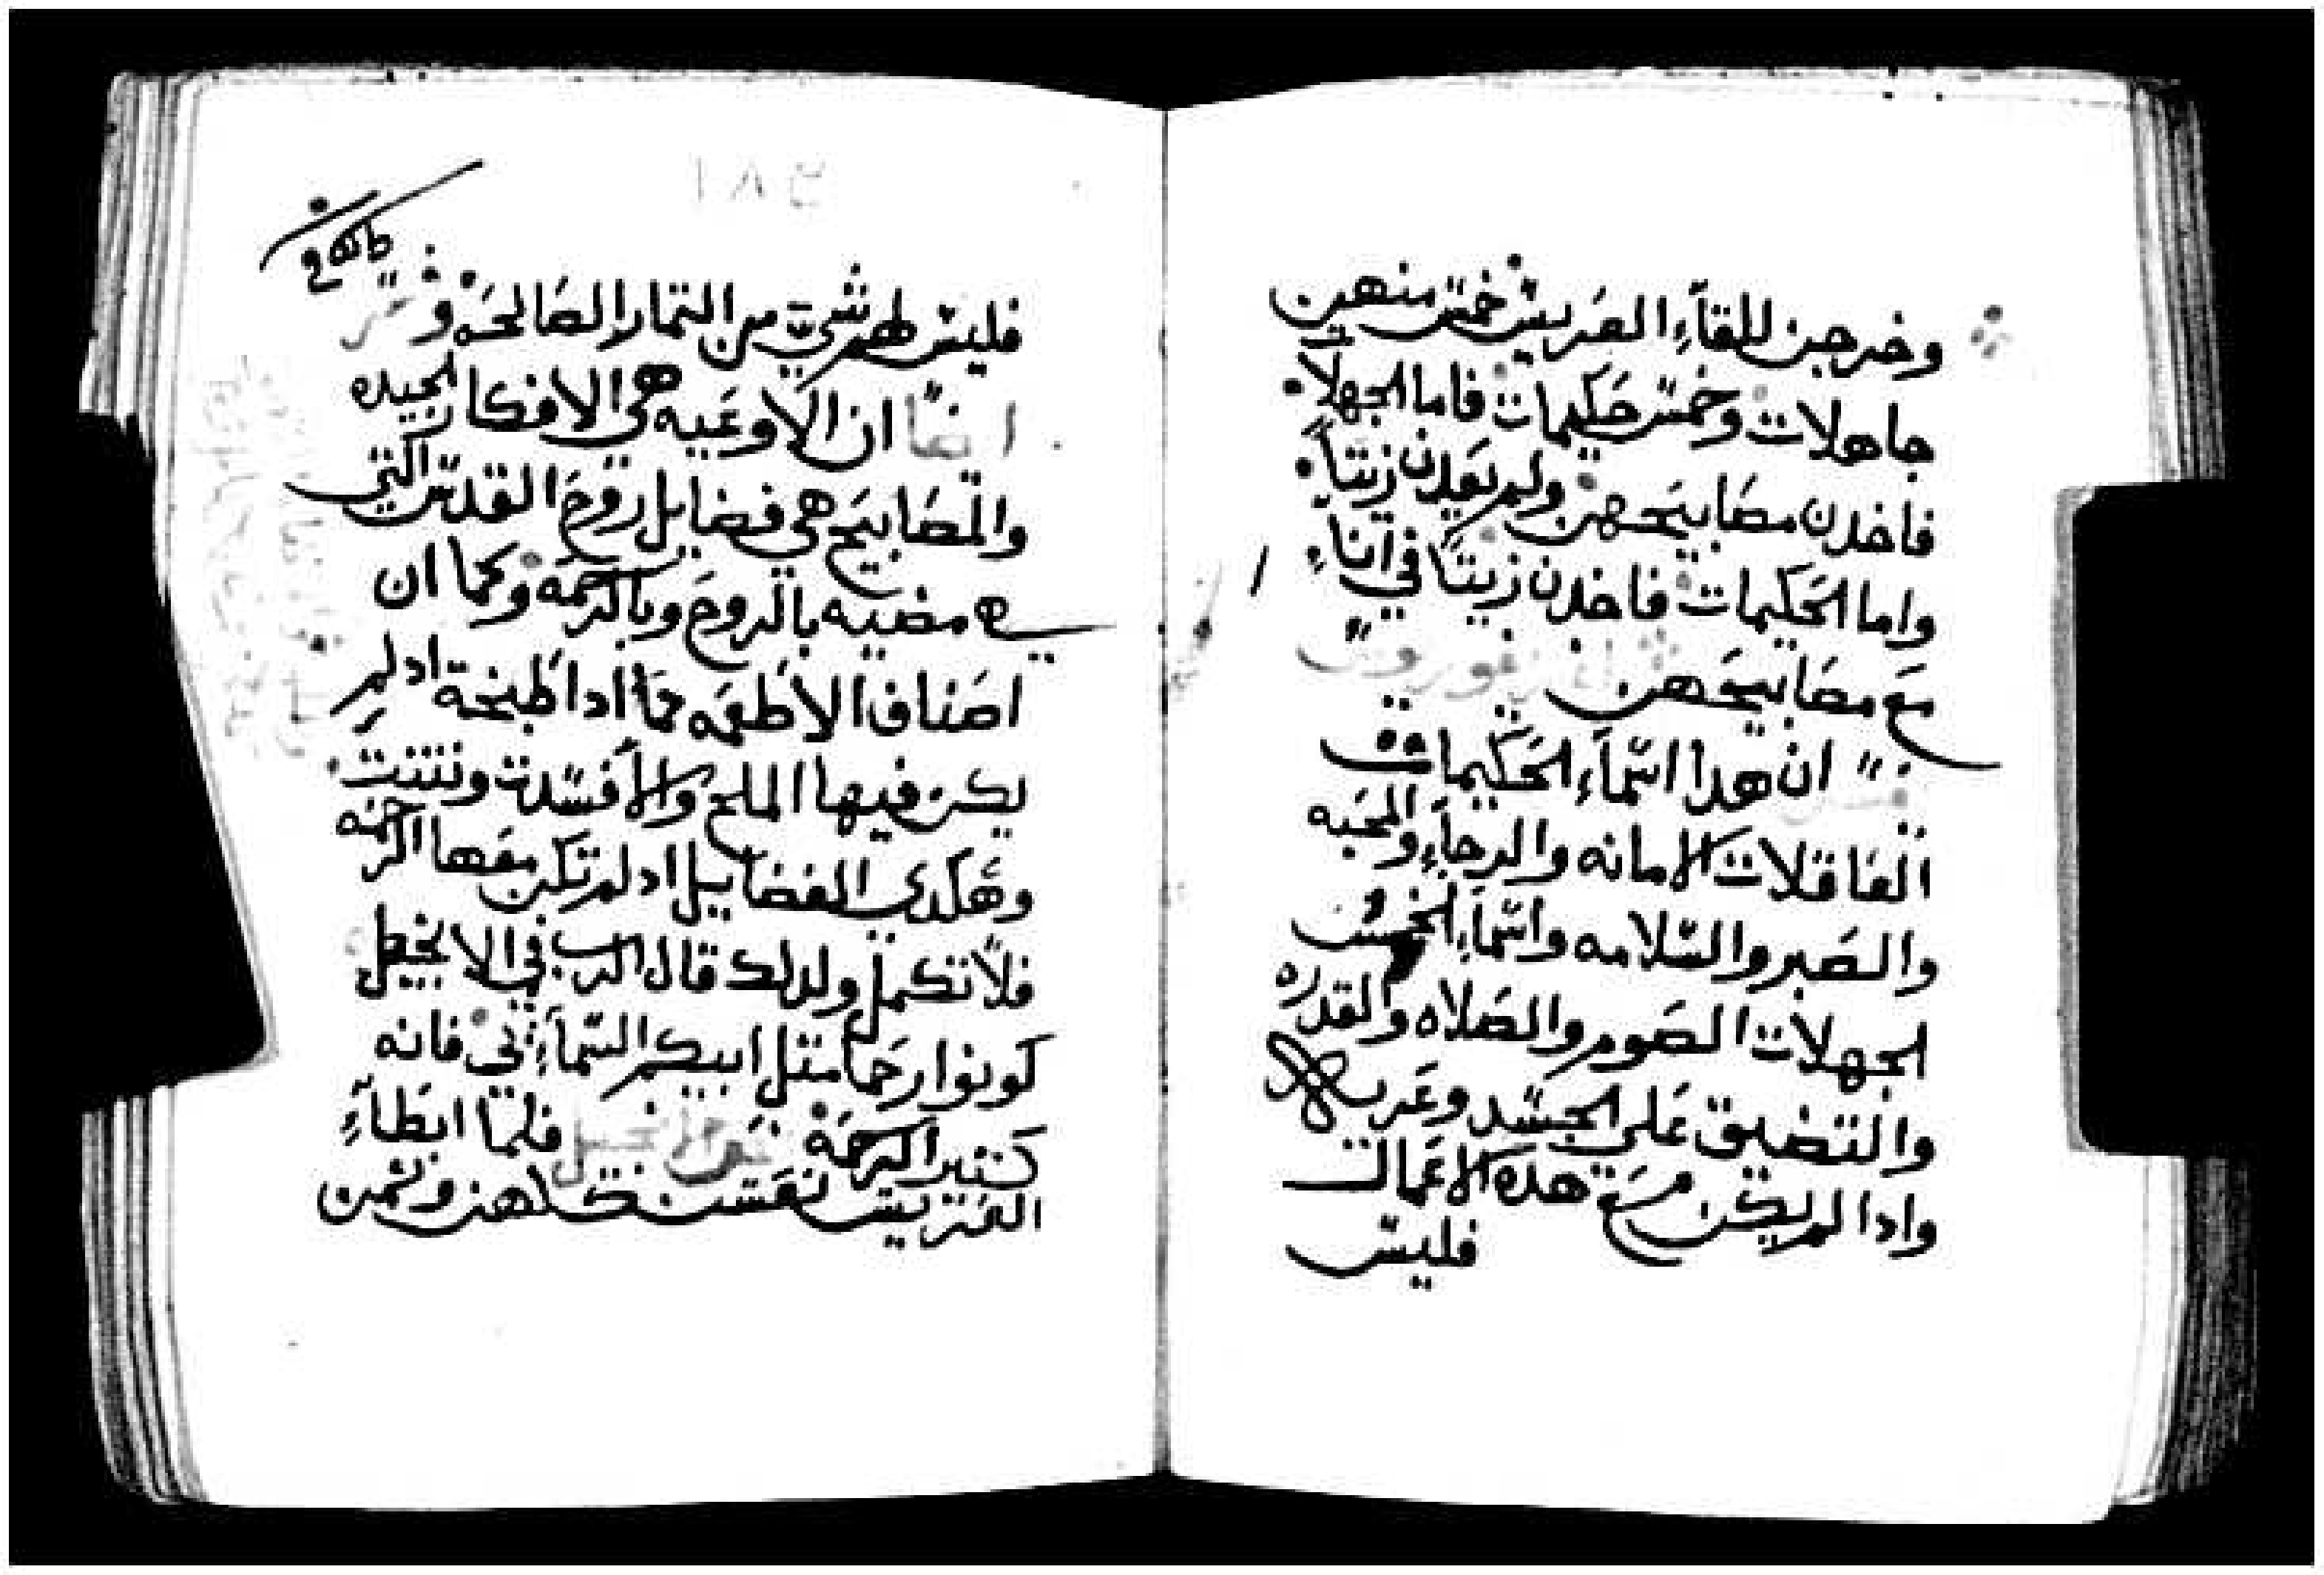 وخرجن للقآءِ العريش خمس منهين
جاهلات وخمس حكيمات فاما الجهلاَ
فاخدن مصابيحهن ولم يعدن زيتاً
واما الحكيمات فاخدن زيتاً في اناءِ
مع مصابيحهن
ان هدا اسمآءِ الحكيمات
العاقلات الامانه والرجآءِ والمحبه
والصبر والسلامه واسمآءِ الخمس
الجهلات الصوم والصلاه والقدره
والتضيق على الجسد وعدب
وادا لم يكن مع هده الاعمال
فليس
١٨٥
فليس لهم شي من التمار الصالحه و
ايضاً ان الاوعيه هي الافكار الجيده
والمصابيح هي فضايل روح القدس التي
هي مضيه بالروح وبالرحمه وكما ان
اصناف الاطعمه مما ادا طبخة ادلم
يكن فيها الملح والا فسدت ونتنت
وهكدي الفضايل ادلم تكن معها الرحمه
فلا تكمل ولدلك قال الرب في الانجيل
كونوا رحما متل ابيكم السمآءِي فانه
كتير الرحمه فلما ابطآءِ
العريس نعسن كلهن ونمن